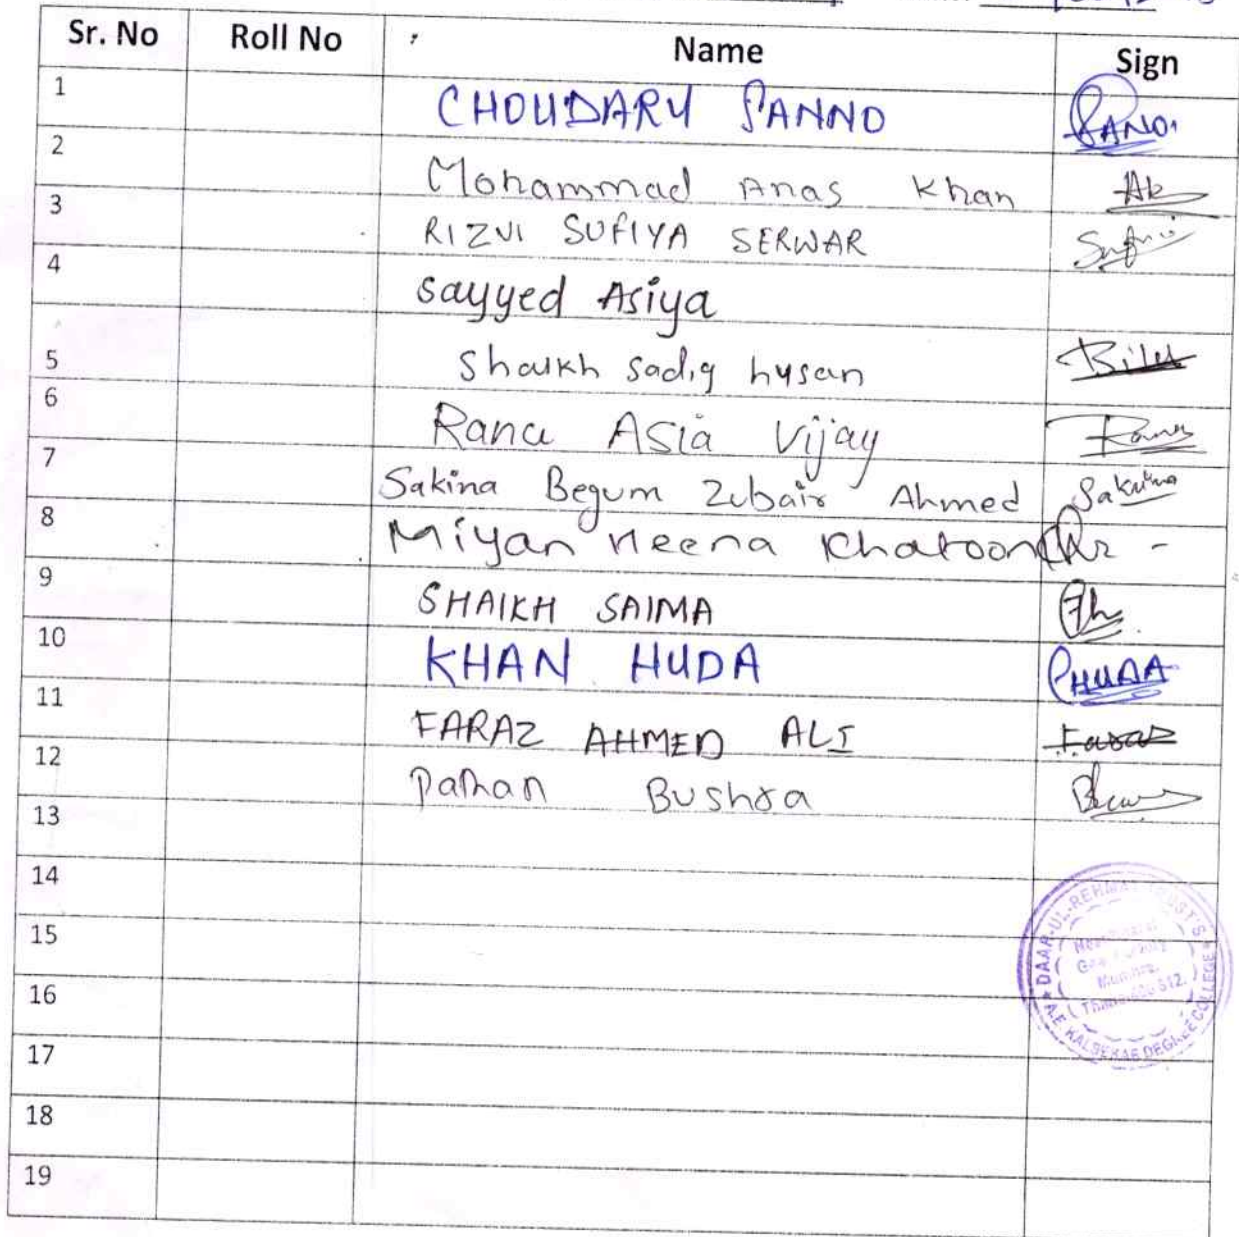 Sr. No Roll No Name Sign
1 CHOUDARY PANNO PANO.
2 Mohammad Anas Khan AK
3 RIZVI SUFIYA SERWAR
4 Sayyed Asiya
5 Shaikh Sadiq husan
6 Rana Asia Vijay Rana
7 Sakina Begum Zubair Ahmed Sakina
8 Miyan Meena Khatoon
9 SHAIKH SAIMA
10 KHAN HUDA HUDA
11 FARAZ AHMED ALI Faraz
12 Pathan Bushra
13
14
15
16
17
18
19
DAAR-UL-REHMAT TRUST'S
A.E. KALSEKAR DEGREE COLLEGE
Mumbra,